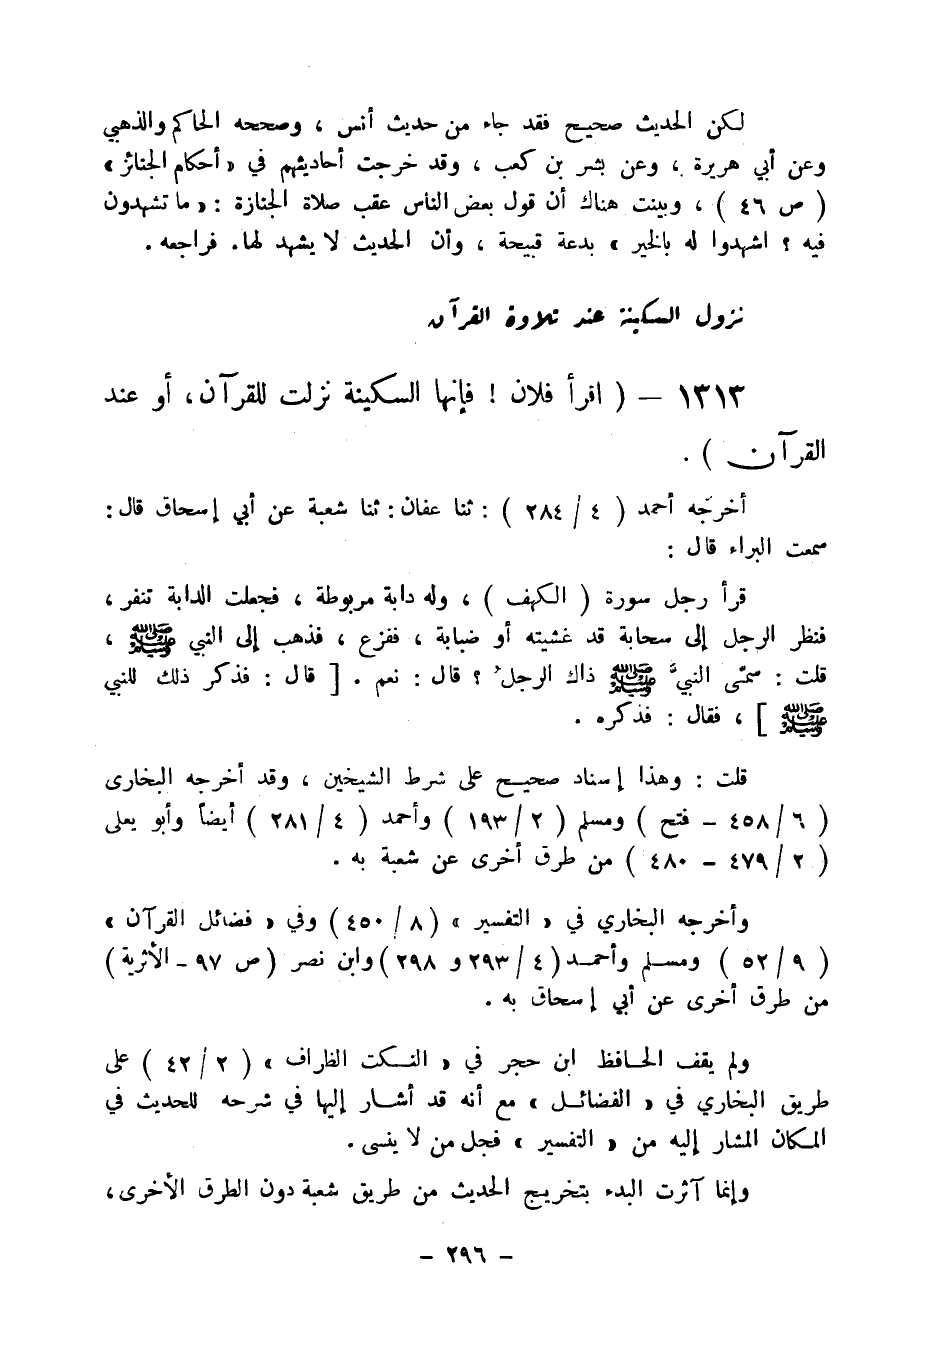 لكن الحديث صحيح فقد جاء من حديث أنس ، وصححه الحاكم والذهبي
وعن أبي هريرة ، وعن بشر بن كعب ، وقد خرجت أحاديثهم في « أحكام الجنائز »
( ص ٤٦ ) ، وبينت هناك أن قول بعض الناس عقب صلاة الجنازة : « ما تشهدون
فيه ؟ اشهدوا له بالخير » بدعة قبيحة ، وأن الحديث لا يشهد لها. فراجعه .
نزول السكينة عند تلاوة القرآن
١٣١٣ – ( اقرأ فلان ! فإنها السكينة نزلت للقرآن، أو عند
القرآن ) .
أخرجه أحمد ( ٤ / ٢٨٤ ) : ثنا عفان: ثنا شعبة عن أبي إسحاق قال:
سمعت البراء قال :
قرأ رجل سورة ( الكهف ) ، وله دابة مربوطة ، فجعلت الدابة تنفر ،
فنظر الرجل إلى سحابة قد غشيته أو ضبابة ، ففزع ، فذهب إلى النبي ﷺ ،
قلت : سمّى النبيُّ ﷺ ذاك الرجلَ ؟ قال : نعم . [ قال : فذكر ذلك للنبي
ﷺ ] ، فقال : فذكره .
قلت : وهذا إسناد صحيح على شرط الشيخين ، وقد أخرجه البخارى
( ٦ / ٤٥٨ – فتح ) ومسلم ( ٢ / ١٩٣ ) وأحمد ( ٤ / ٢٨١ ) أيضاً وأبو يعلى
( ٢ / ٤٧٩ – ٤٨٠ ) من طرق أخرى عن شعبة به .
وأخرجه البخاري في « التفسير » ( ٨ / ٤٥٠ ) وفي « فضائل القرآن »
( ٩ / ٥٢ ) ومسلم وأحمد ( ٤ / ٢٩٣ و ٢٩٨ ) وابن نصر ( ص ٩٧ – الأثرية )
من طرق أخرى عن أبي إسحاق به .
ولم يقف الحافظ ابن حجر في « النكت الظراف » ( ٢ / ٤٢ ) على
طريق البخاري في « الفضائل » مع أنه قد أشار إليها في شرحه للحديث في
المكان المشار إليه من « التفسير » فجل من لا ينسى .
وإنما آثرت البدء بتخريج الحديث من طريق شعبة دون الطرق الأخرى،
– ٢٩٦ –